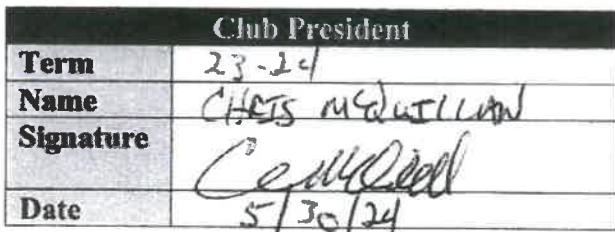 Club President
Term 23-24
Name CHRIS MCQUILLAN
Signature
Date 5/30/24